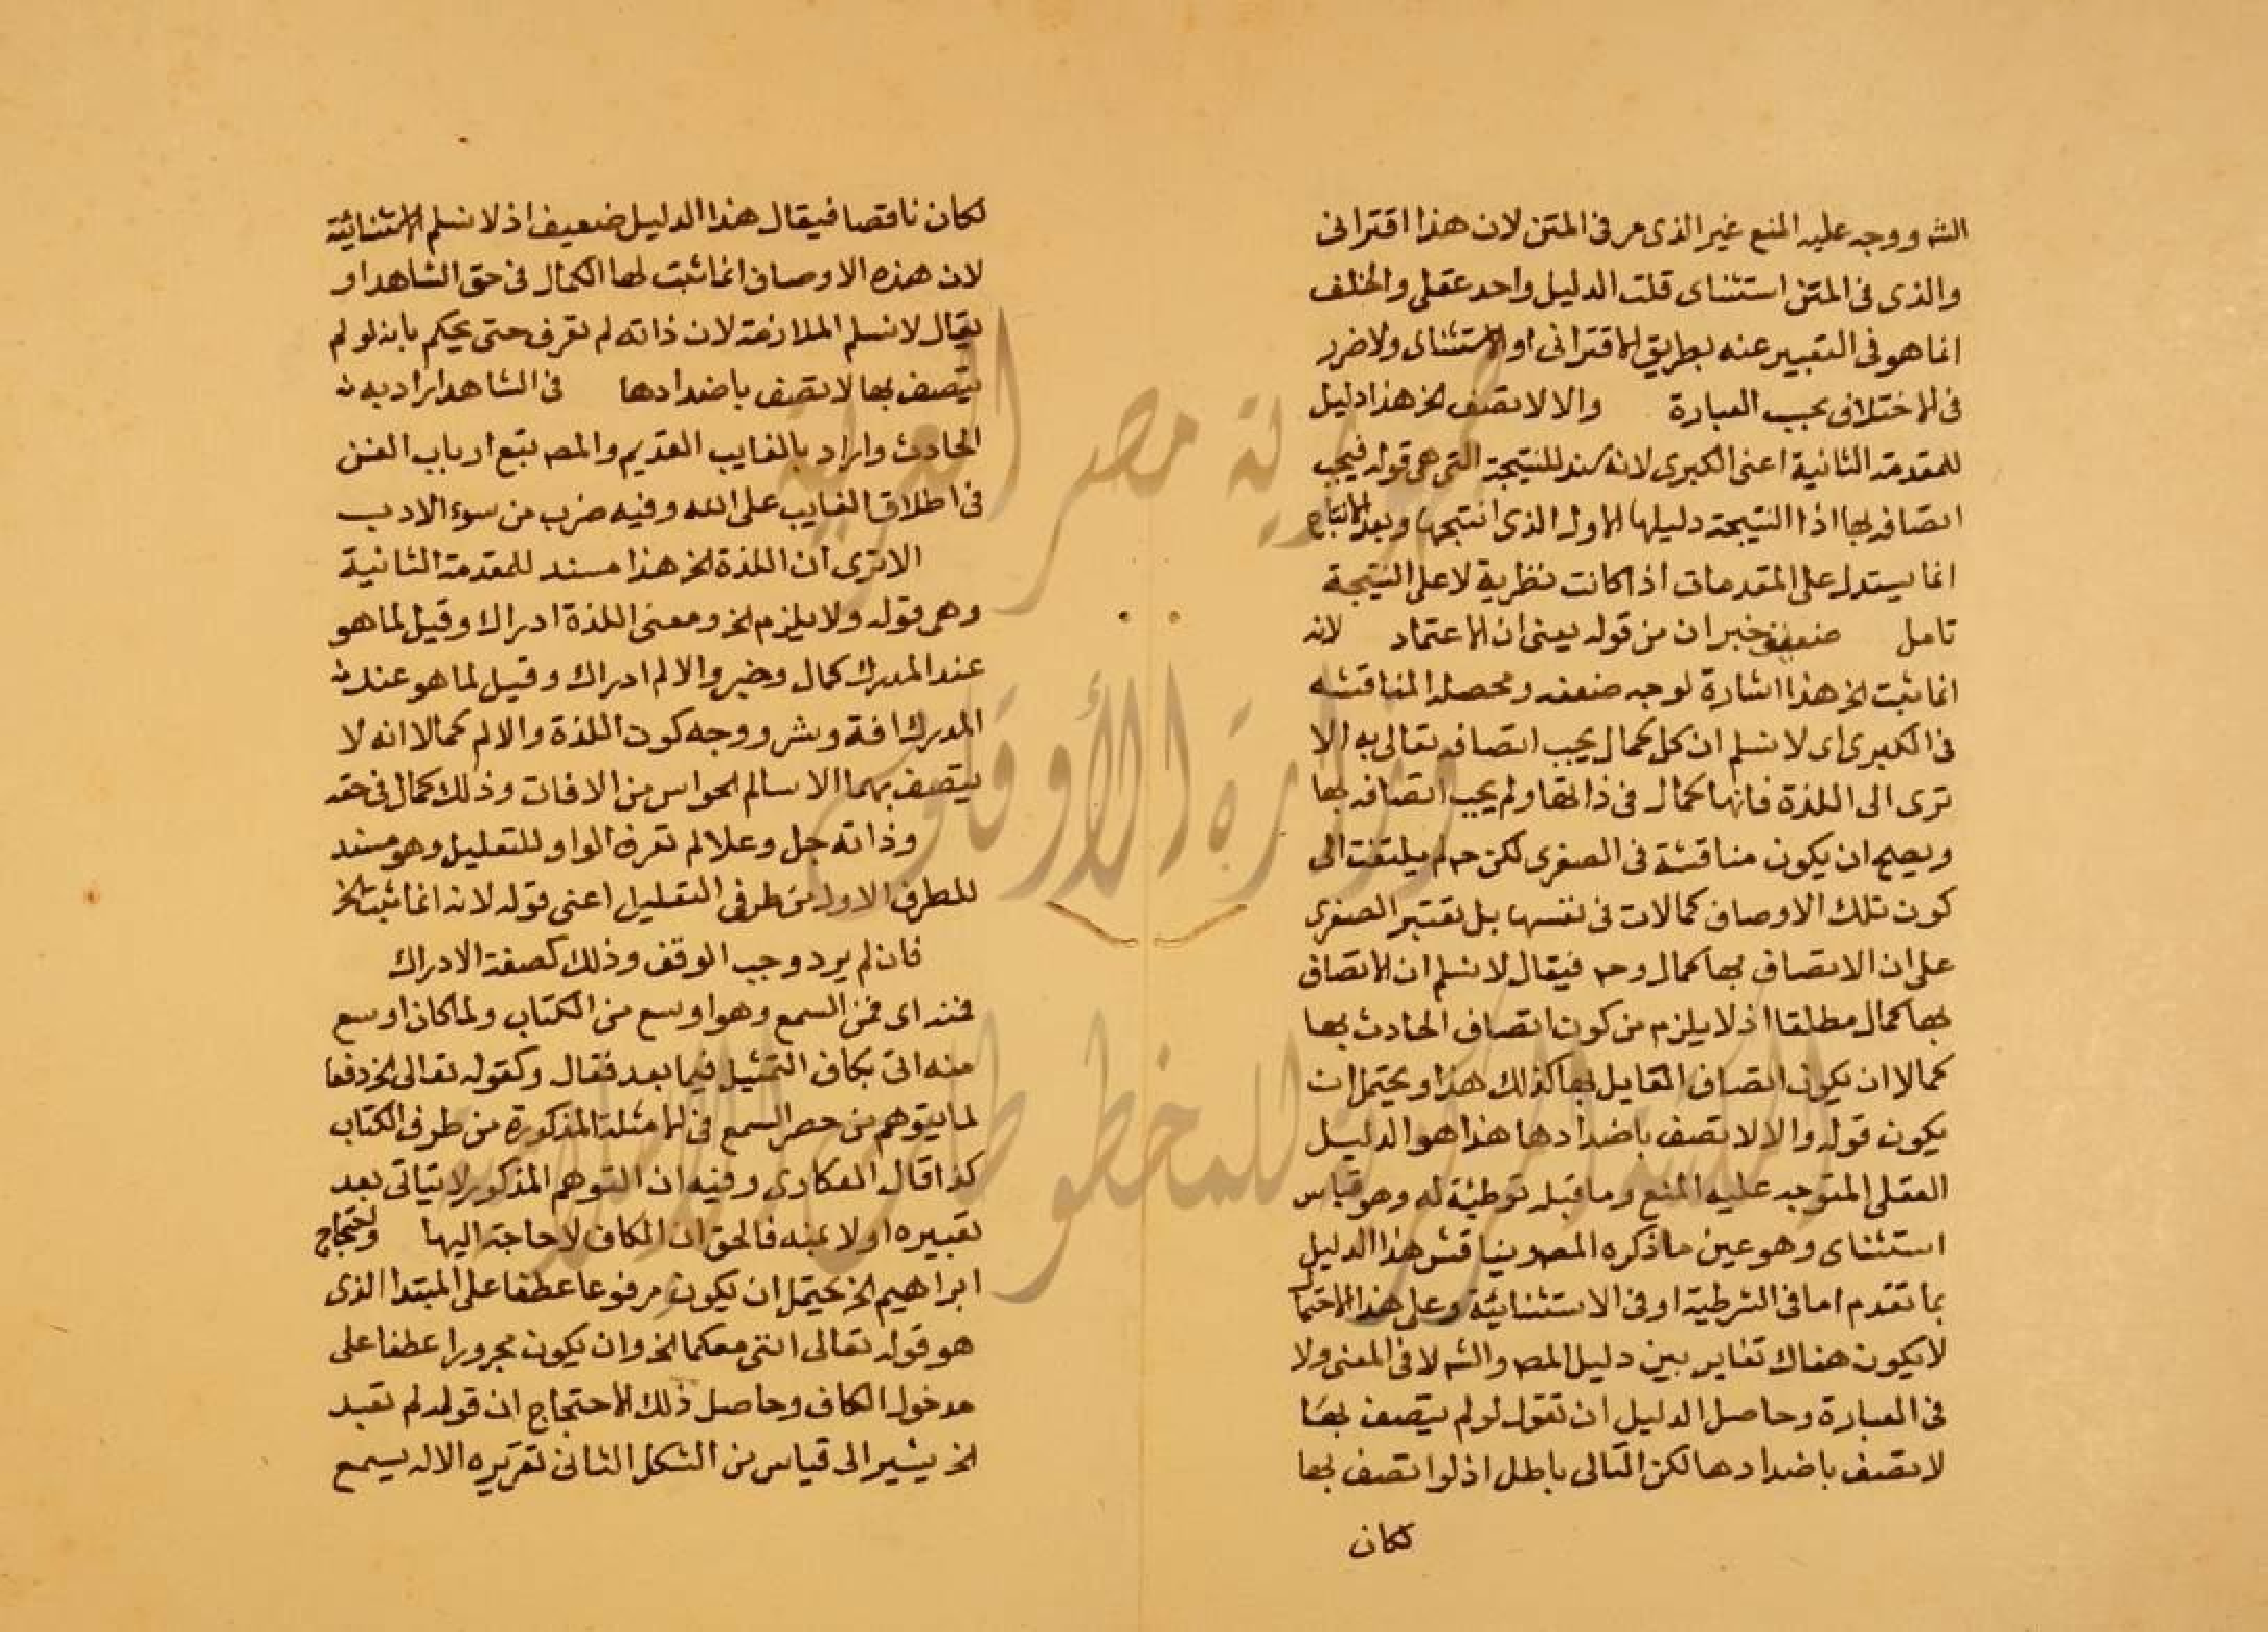 الشه ووجه عليه المنع غير الذى مر فى المتن لان هذا اقترانى
والذى فى المتن استثناى قلت الدليل واحد عقلى والخلف
انما هو فى التعبير عنه بطريق الاقترانى او الاستثناى ولا ضرر
فى الاختلاف بحسب العبارة والا لا تصف الخ هذا دليل
للمقدمة الثانية اعنى الكبرى لانه سند للنتيجة التى هى قوله فيجب
اتصافه بها اذا النتيجة دليلها الاول الذى انتجها وبعد الانتاج
انما يستدل على المقدمات اذا كانت نظرية لا على النتيجة
تامل ضعيف خبر ان من قوله يعنى ان الاعتماد لانه
انما ثبت الخ هذا اشارة لوجه ضعفه ومحصله المناقشه
فى الكبرى اى لا نسلم ان كل كمال يجب اتصافه تعالى به الا
ترى الى اللذة فانها كمال فى ذاتها ولم يجب اتصافه بها
ويصح ان يكون مناقشة فى الصغرى لكن ح لم يلتفت الى
كون تلك الاوصاف كمالات فى نفسها بل تعتبر الصغرى
على ان الاتصاف بها كمال وح فيقال لا نسلم ان الاتصاف
بها كمال مطلقا اذ لا يلزم من كون اتصاف الحادث بها
كمالا ان يكون اتصاف القايل بها كذلك هذا ويحتمل ان
يكون قوله والا لا تصف باضدادها هذا هو الدليل
العقلى المتوجه عليه المنع وما قبله توطئة له وهو قياس
استثناى وهو عين ما ذكره المصه ويناقش هذا الدليل
بما تقدم اما فى الشرطية او فى الاستثنائية وعلى هذا الاحتمال
لا يكون هناك تغاير بين دليل المصه والشه لا فى المعنى ولا
فى العبارة وحاصل الدليل ان تقول لو لم يتصف بها
لا تصف باضدادها لكن التالى باطل اذ لو اتصف بها
لكان
لكان ناقصا فيقال هذا الدليل ضعيف اذ لا نسلم الاستثنائية
لان هذه الاوصاف انما ثبت لها الكمال فى حق الشاهد او
يقال لا نسلم الملازمة لان ذاته لم تعرف حتى يحكم بانه لو لم
يتصف بها لا تصف باضدادها فى الشاهد اراد به
الحادث واراد بالغايب القديم والمصه تبع ارباب الفن
فى اطلاق الغايب على الله وفيه ضرب من سوء الادب
الا ترى ان اللذة الخ هذا مسند للمقدمة الثانية
وهى قوله ولا يلزم الخ ومعنى اللذة ادراك وقيل لما هو
عند المدرك كمال وخير والالم ادراك وقيل لما هو عند
المدرك افة وشر ووجه كون اللذة والالم كمالا انه لا
يتصف بهما الا سالم الحواس من الافات وذلك كمال فى حقه
وذاته جل وعلا لم تعرف الواو للتعليل وهو مسند
للطرف الاول من طرفى التعليل اعنى قوله لانه انما ثبت الخ
فان لم يرد وجب الوقف وذلك كصفة الادراك
فمنه اى فمن السمع وهو اوسع من الكتاب ولما كان اوسع
منه اتى بكاف التمثيل فيما بعد فقال وكقوله تعالى الخ دفعا
لما يتوهم من حصر السمع فى الامثلة المذكورة من طرف الكتاب
كذا قال العكارى وفيه ان التوهم المذكور لا يتاتى بعد
تعبيره اولا بمنه فالحق ان الكاف لا حاجة اليها ولاحتجاج
ابراهيم الخ يحتمل ان يكون مرفوعا عطفا على المبتدا الذى
هو قوله تعالى اننى معكما الخ وان يكون مجرورا عطفا على
مدخول الكاف وحاصل ذلك الاحتجاج ان قوله لم تعبد
الخ يشير الى قياس من الشكل الثانى تقريره الاله يسمع